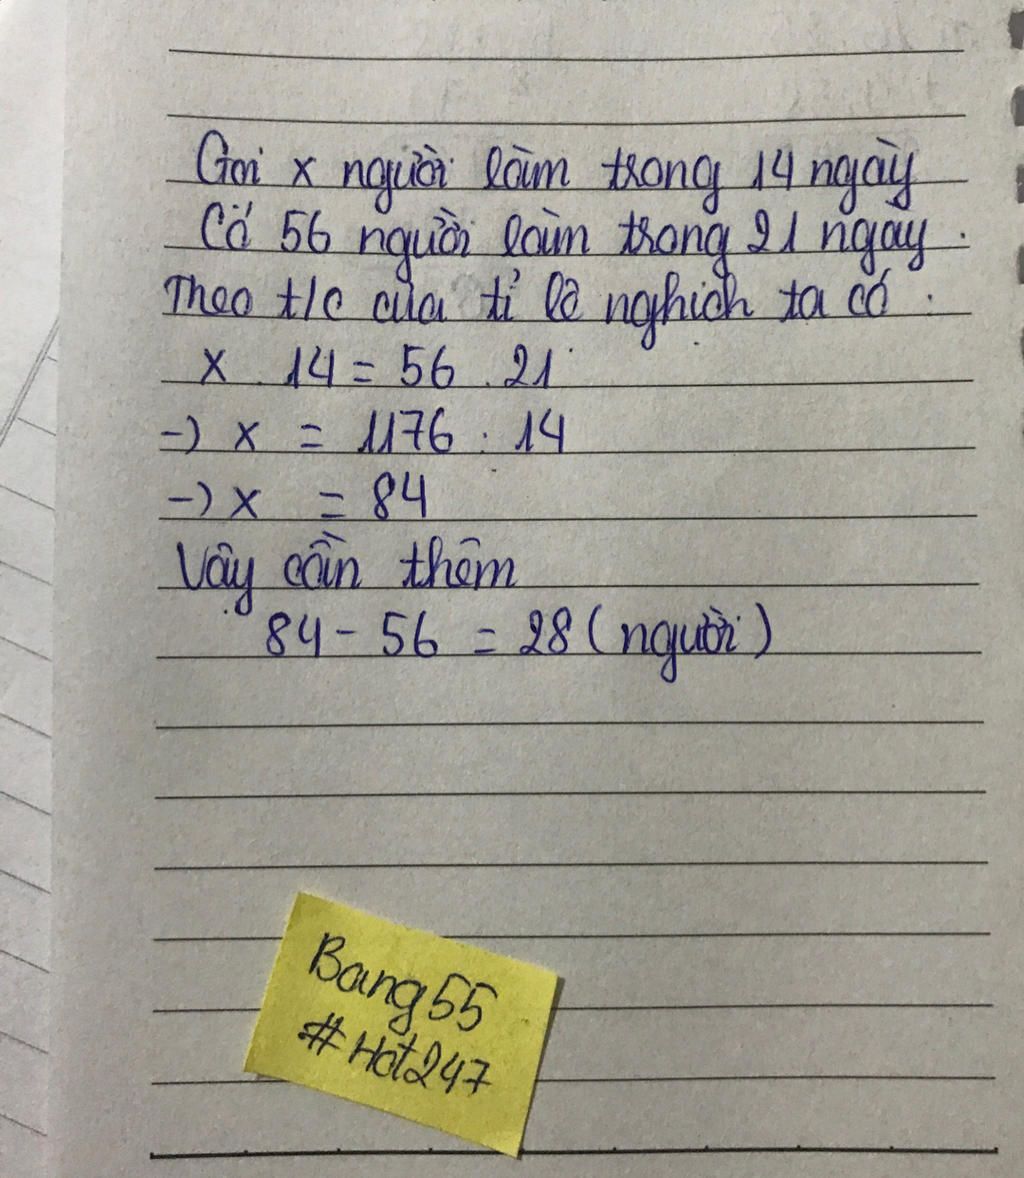 Gọi x người làm trong 14 ngày
Có 56 người làm trong 21 ngày.
Theo t/c của tỉ lệ nghịch ta có.
x . 14 = 56 . 21
-) x = 1176 : 14
-) x = 84
Vậy cần thêm
84 - 56 = 28 (người)
Bang55
#Hot247